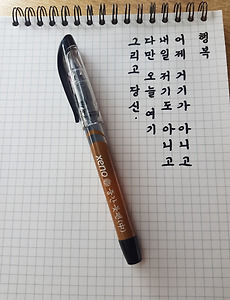 행복
어제 거기가 아니고
내일 저기도 아니고
다만 오늘 여기
그리고 당신.
xeno